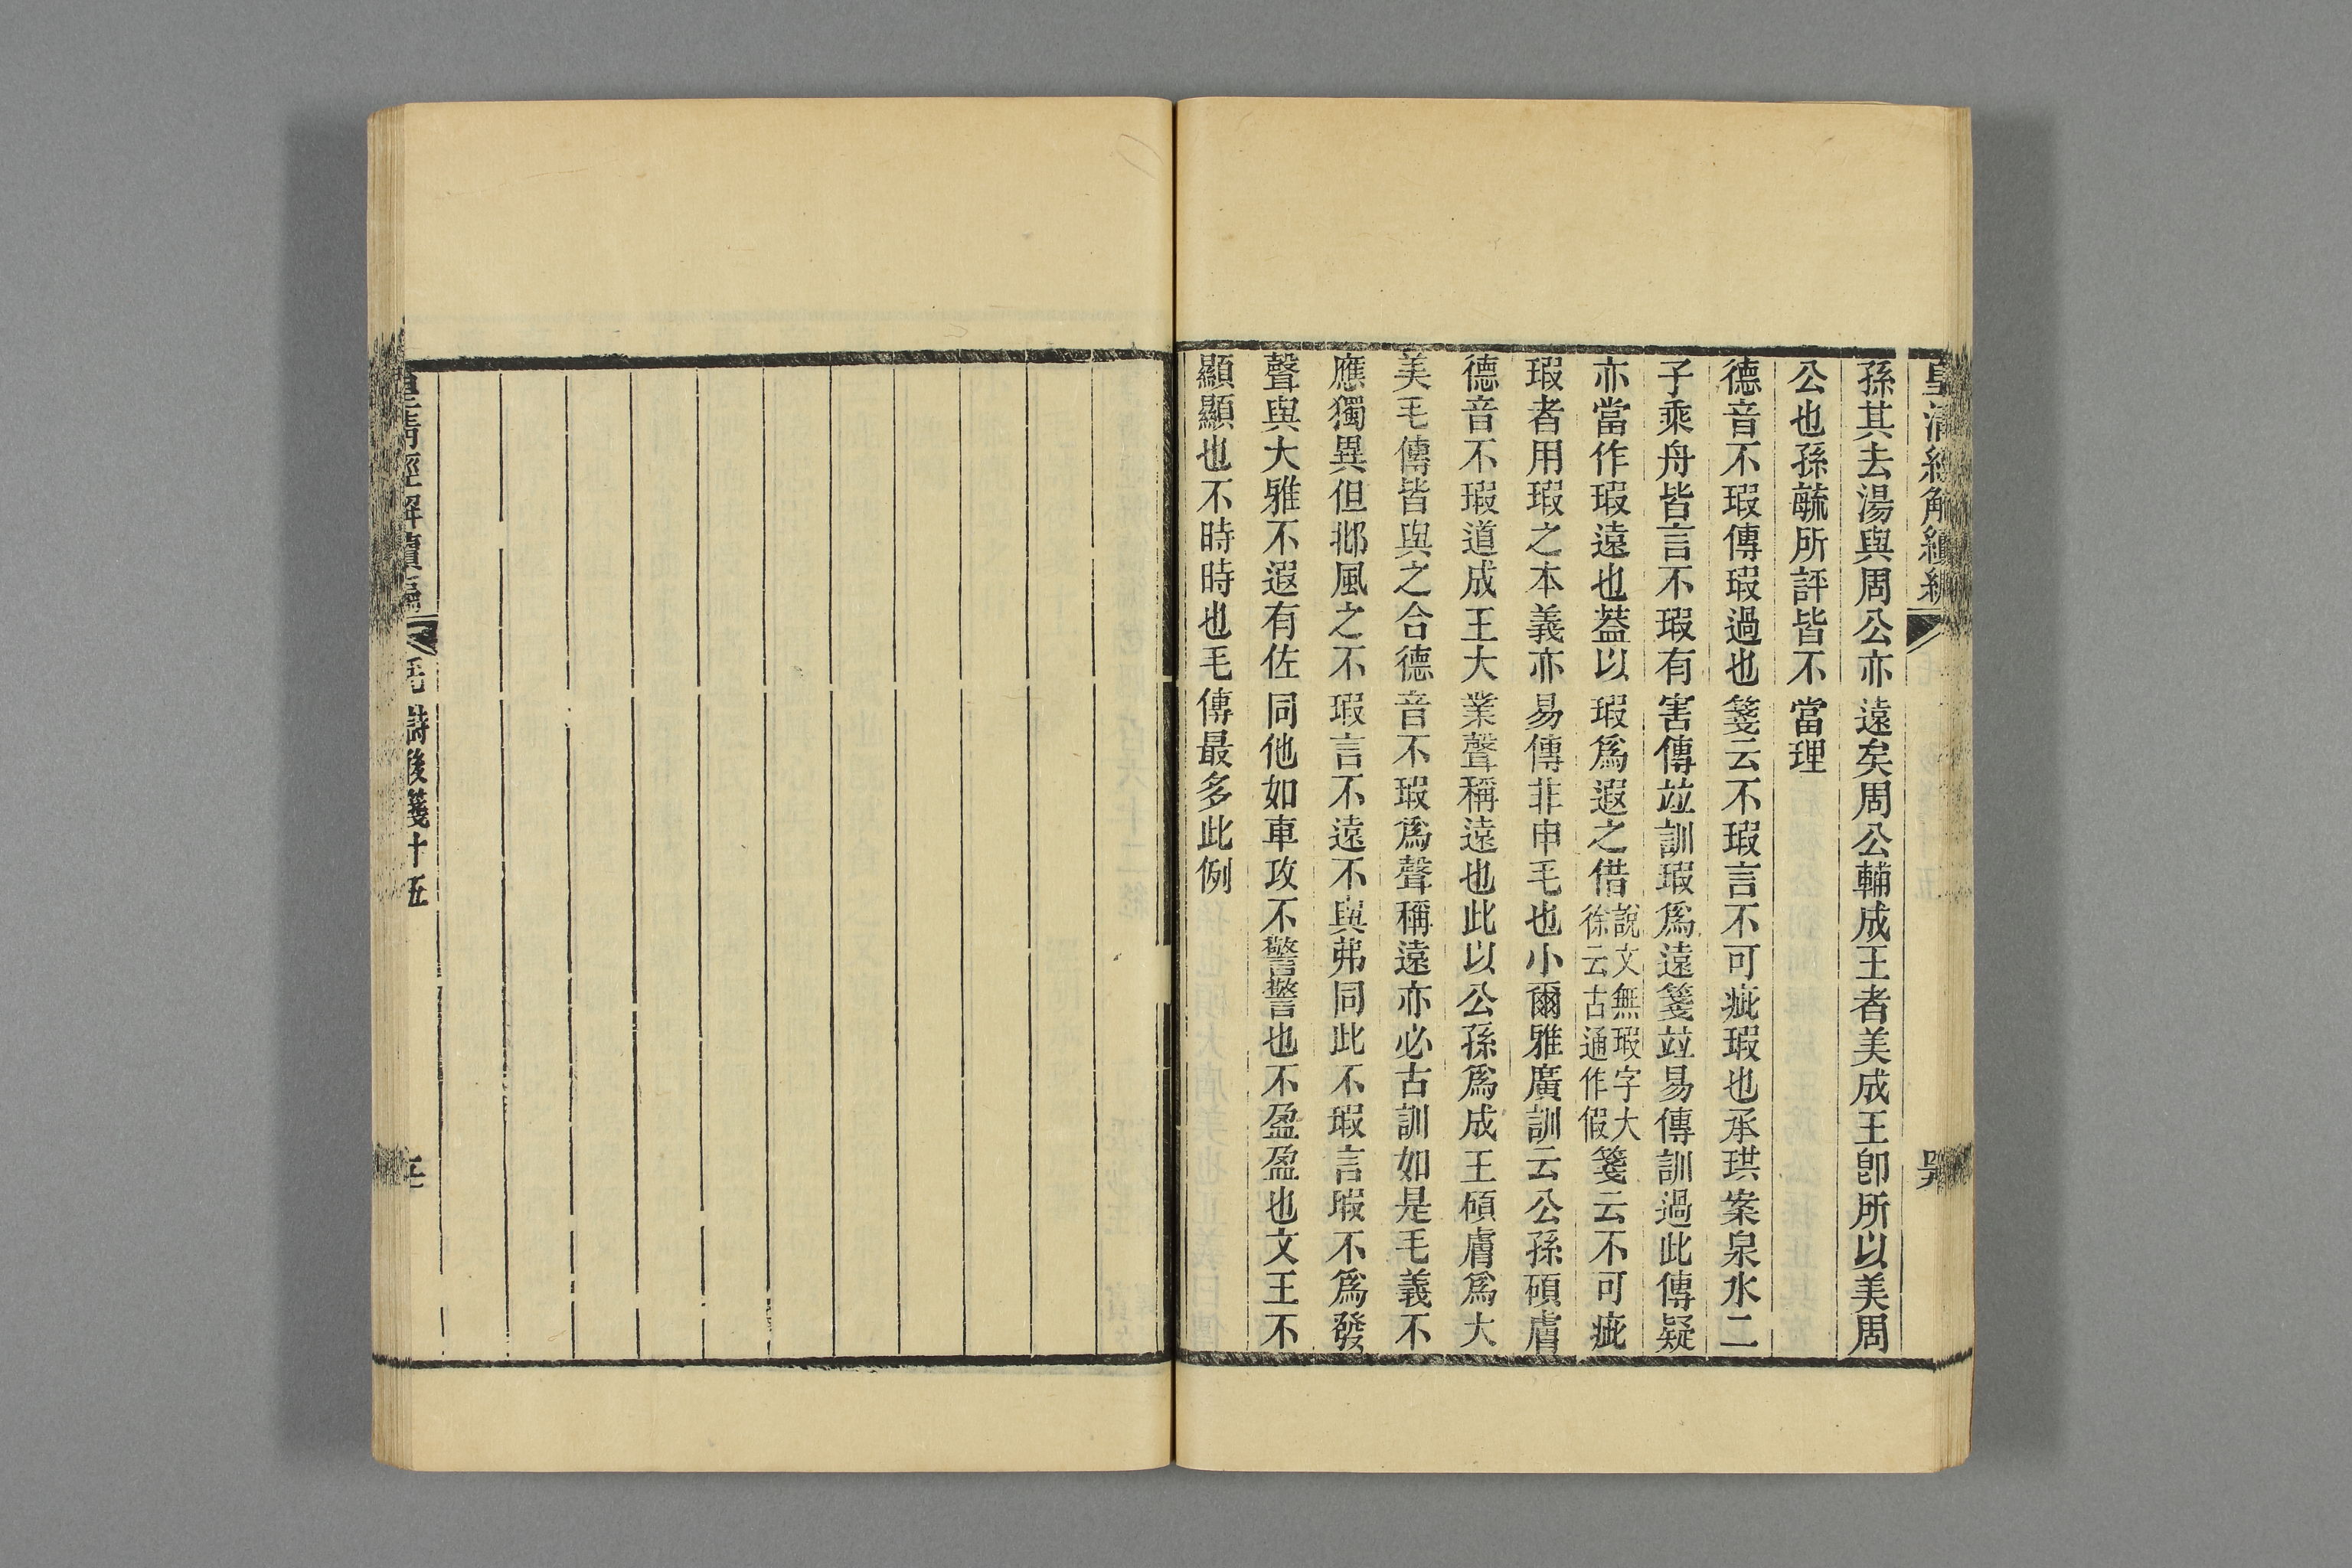 皇清經解續編
孫其去湯與周公亦遠矣周公輔成王者美成王卽所以美周
公也孫毓所評皆不當理
德音不瑕傳瑕過也箋云不瑕言不可疵瑕也承珙案泉水二
子乘舟皆言不瑕有害傳竝訓瑕爲遠箋竝易傳訓過此傳疑
亦當作瑕遠也葢以瑕爲遐之借說文無瑕字大徐云古通作假箋云不可疵
瑕者用瑕之本義亦易傳非申毛也小爾雅廣訓云公孫碩膚
德音不瑕道成王大業聲稱遠也此以公孫爲成王碩膚爲大
美毛傳皆與之合德音不瑕爲聲稱遠亦必古訓如是毛義不
應獨異但邶風之不瑕言不遠不與弗同此不瑕言瑕不爲發
聲與大雅不遐有佐同他如車攻不警警也不盈盈也文王不
顯顯也不時時也毛傳最多此例
皇清經解續編
毛詩後箋十五